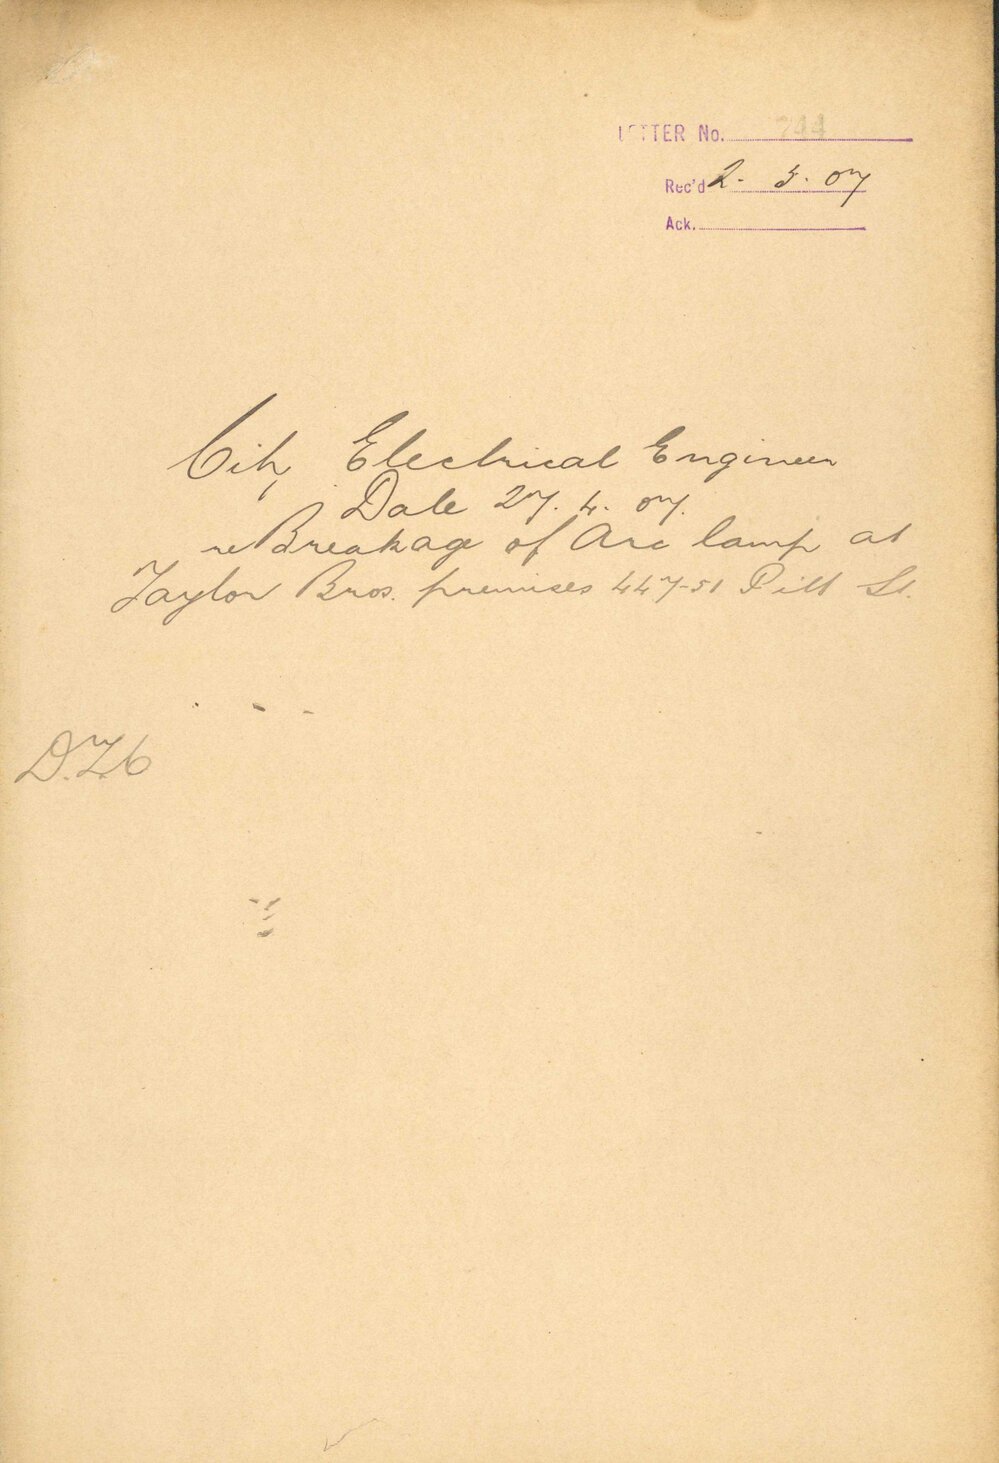 LETTER No. 744
Rec'd 2. 5. 07
Ack.
City Electrical Engineer
Date 27. 4. 07.
re Breakage of Arc lamp at
Taylor Bros. premises 447-51 Pitt St.